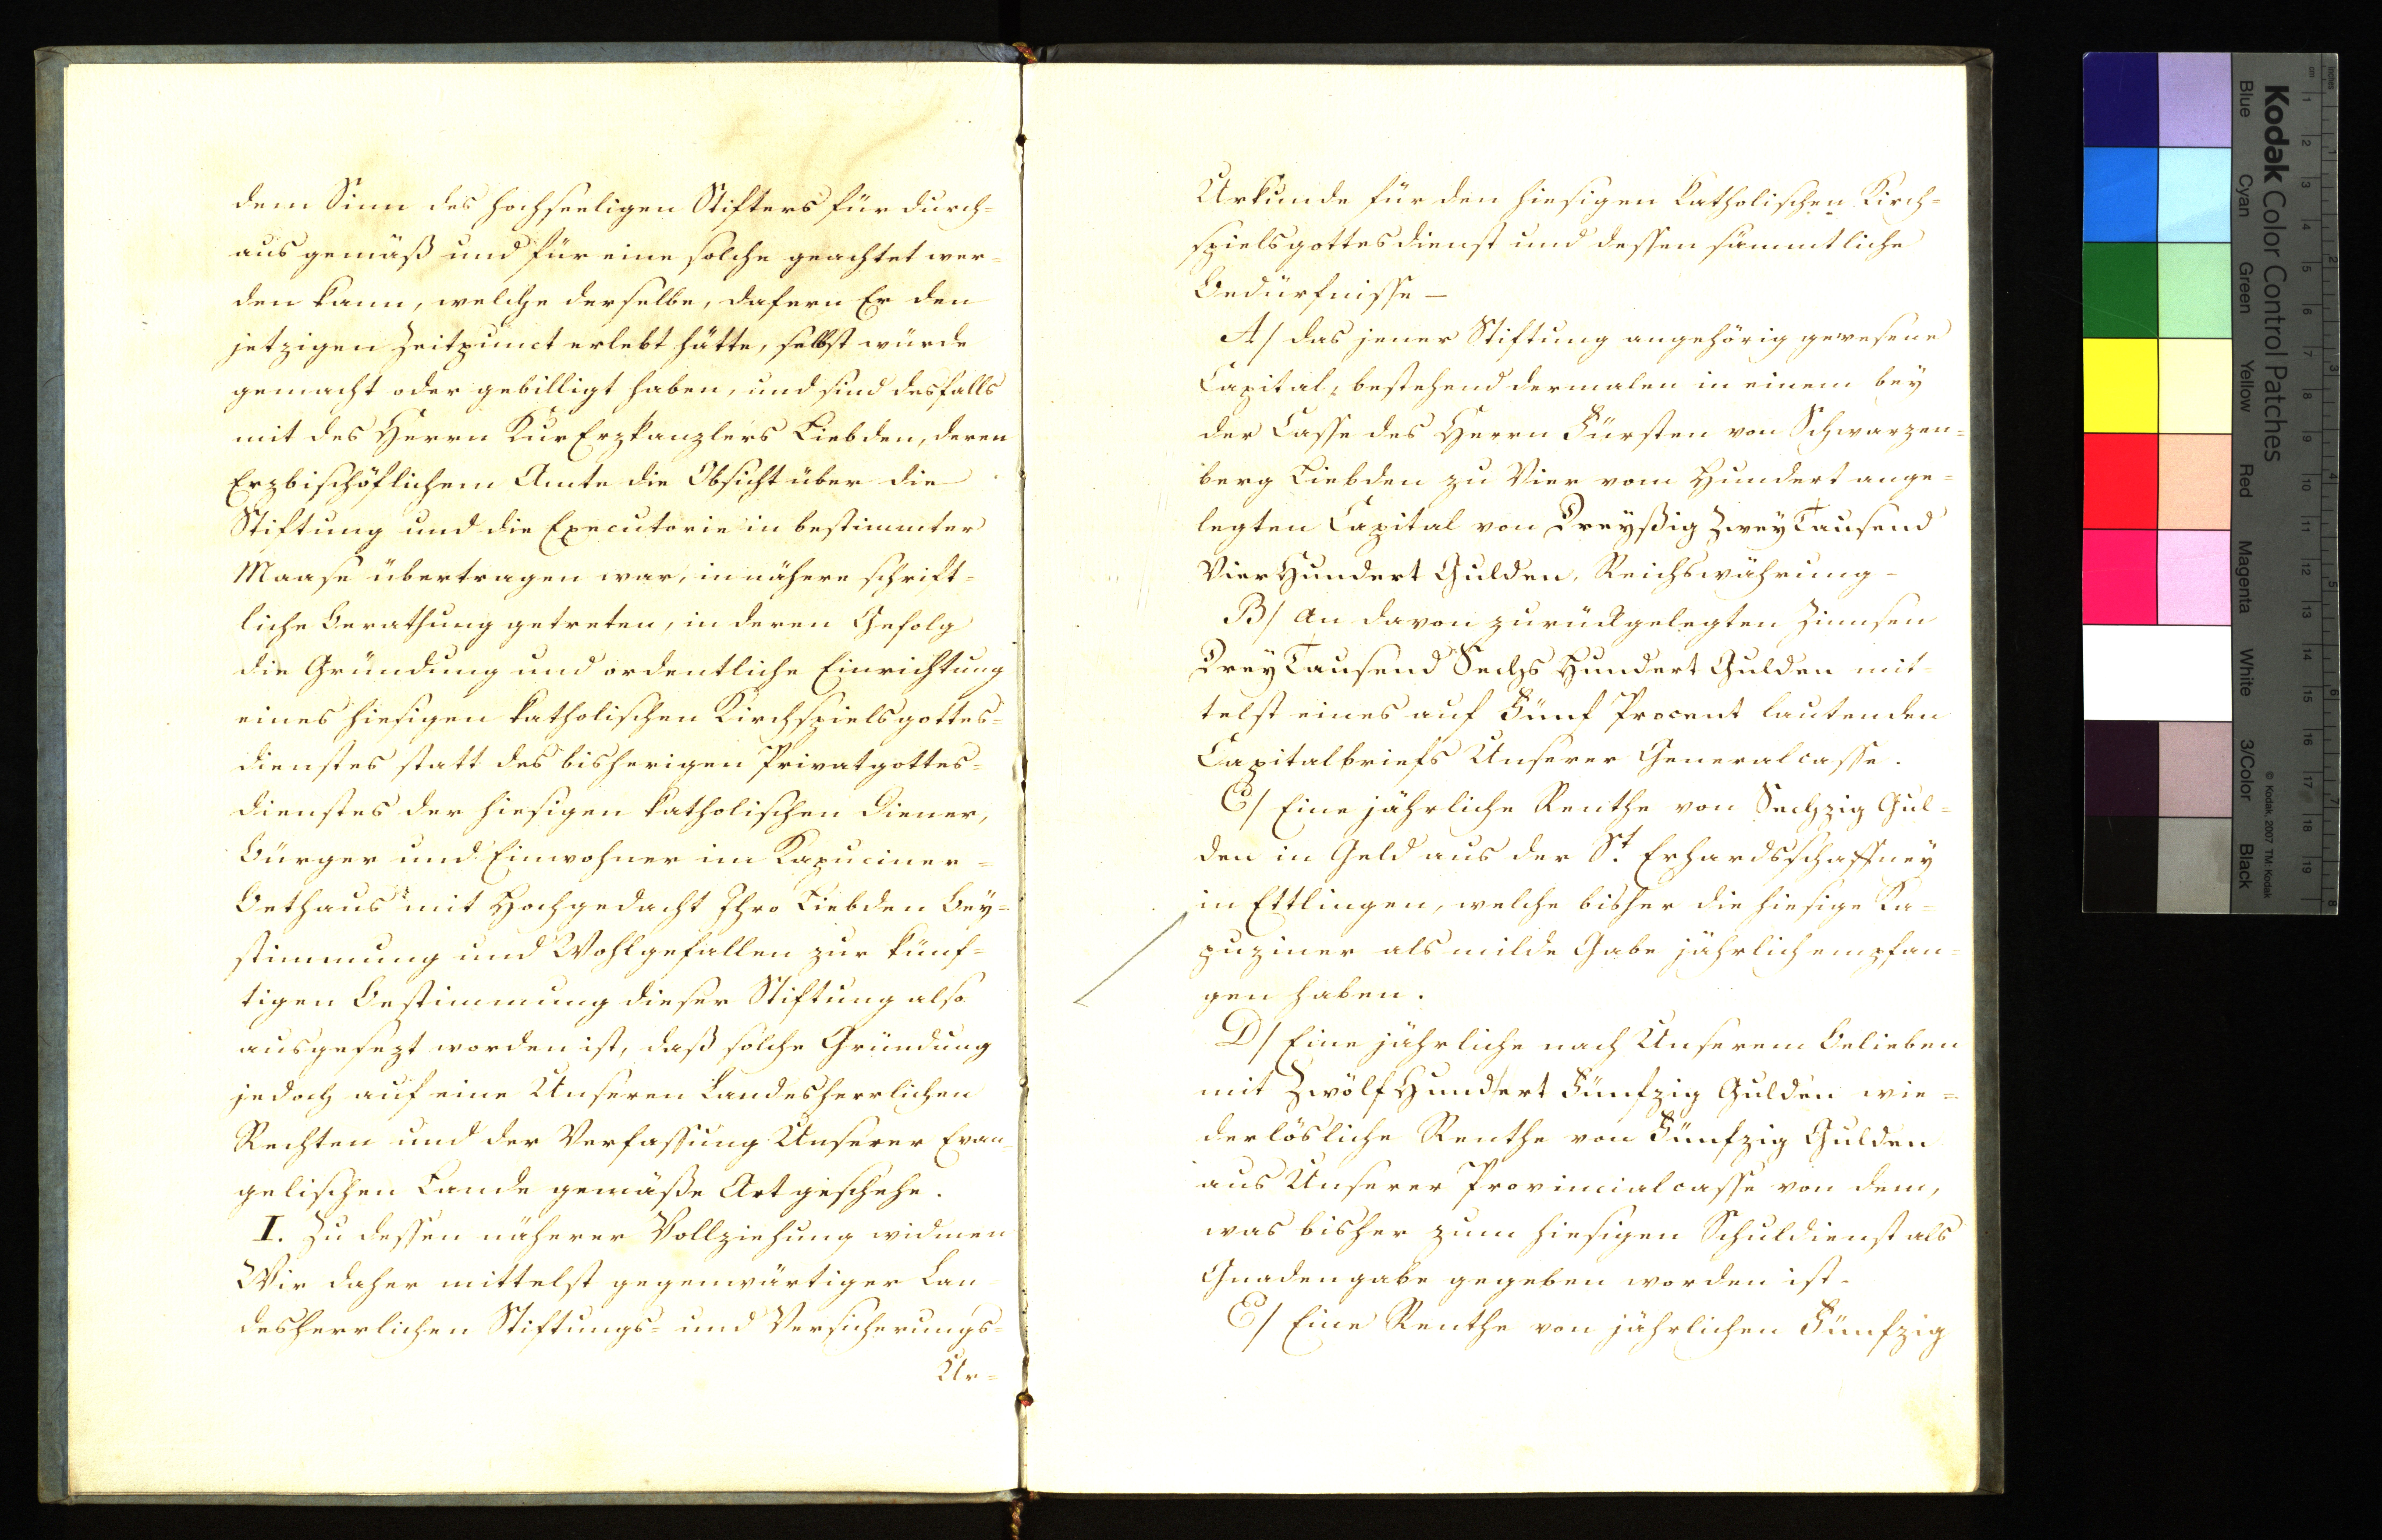 dem Sinn des hochseeligen Stifters für durch=
aus gemäß und für eine solche geachtet wer=
den kann, welche derselbe, dafern Er den
jetzigen Zeitpunct erlebt hätte, selbst würde
gemacht oder gebilligt haben, und sind desfalls
mit des Herrn KurErzkanzlers Liebden, deren
Erzbischöflichem Amte die Obsicht über die
Stiftung und die Executorie in bestimmter
Maase übertragen war, in nähere schrift=
liche Berathung getreten, in deren Gefolg
die Gründung und ordentliche Einrichtung
eines hiesigen katholischen Kirchspielsgottes=
dienstes statt des bisherigen Privatgottes=
dienstes der hiesigen katholischen Diener,
Bürger und Einwohner im Kapuciner=
Bethaus mit Hochgedacht Ihro Liebden Bey=
stimmung und Wohlgefallen zur künf=
tigen Bestimmung dieser Stiftung also
ausgesezt worden ist, daß solche Gründung
jedoch auf eine Unseren Landesherrlichen
Rechten und der Verfassung Unserer Evan=
gelischen Lande gemäße Art geschehe.
I. Zu dessen näherer Vollziehung widmen
Wir daher mittelst gegenwärtiger Lan
desherrlichen Stiftungs= und Versicherungs=
Ur=
Urkunde für den hiesigen katholischen Kirch=
spielsgottesdienst und dessen sämmtliche
Bedürfnisse –
A/ das jener Stiftung angehörig gewesene
Capital, bestehend dermalen in einem bey
der Casse des Herrn Fürsten von Schwarzen=
berg Liebden zu Vier vom Hundert ange=
legten Capital von Dreyßig ZweyTausend
VierHundert Gulden, Reichswährung –
B/ An davon zurückgelegten Zinnsen
DreyTausend Sechs Hundert Gulden mit=
telst eines auf Fünf Procent lautenden
Capitalbriefs Unserer Generalcasse.
C/ Eine jährliche Renthe von Sechzig Gul=
den in Geld aus der St. Erhardsschaffney
in Ettlingen, welche bisher die hiesige Ka=
puziner als milde Gabe jährlich empfan=
gen haben.
D/ Eine jährliche nach Unserem Belieben
mit ZwölfHundert Fünfzig Gulden wie=
derlösliche Renthe von Fünfzig Gulden
aus Unserer Provincialcasse von dem,
was bisher zum hiesigen Schuldienst als
Gnadengabe gegeben worden ist –
E/ Eine Renthe von jährlichen Fünfzig
Kodak Color Control Patches
© Kodak, 2007 TM: Kodak
Blue Cyan Green Yellow Red Magenta White 3/Color Black
inches 1 2 3 4 5 6 7 8
cm 1 2 3 4 5 6 7 8 9 10 11 12 13 14 15 16 17 18 19